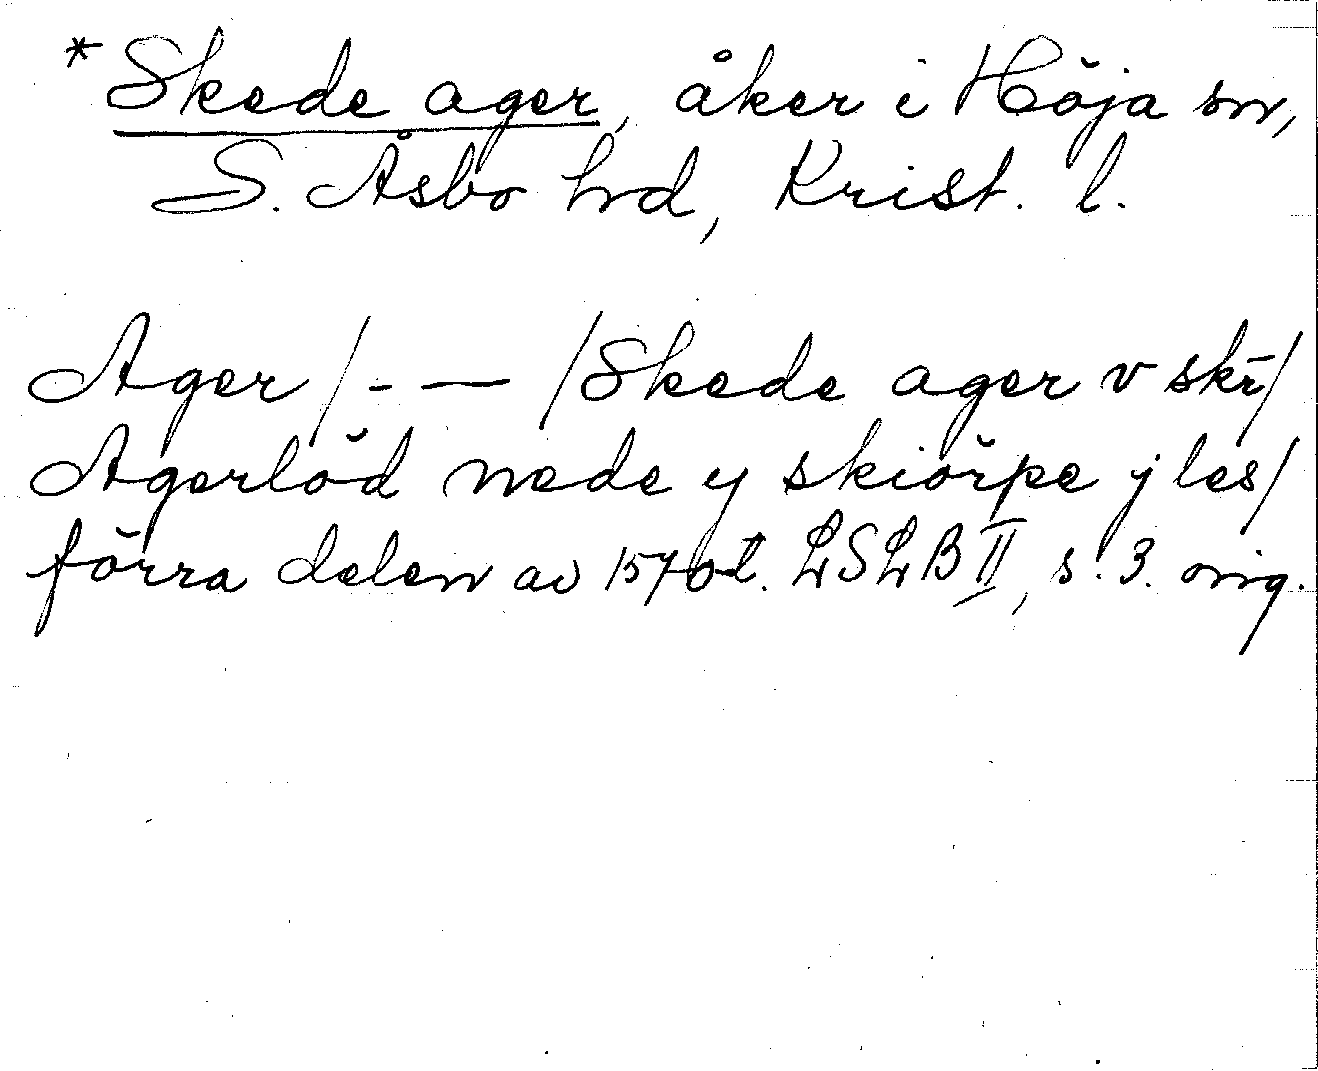 *Skede ager, åker i Höja sn,
S. Åsbo hrd, Krist. l.
Ager /- — /Skede ager v skr̄/
Agerlöd nede y skiörpe j les/
förra delen av 1570-t. LSLB II, s. 3. orig.